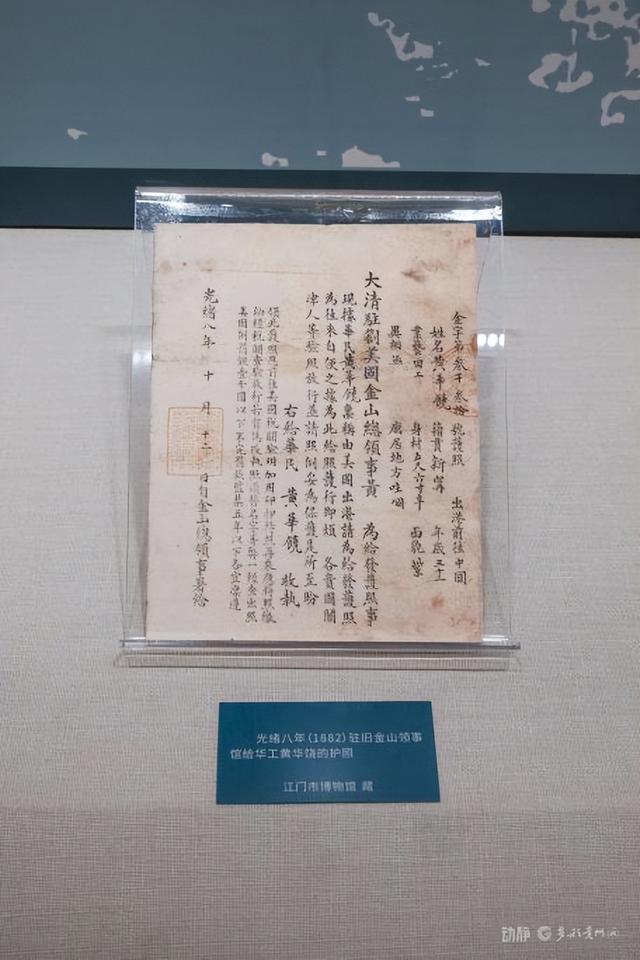 金字第叁千叁拾號護照 出港前往中國
姓名黄華饒 籍貫新寧 年歲三十
業藝田工 身材五尺六寸半 面貌紫
異相無 廠居地方
大清駐劄美國金山總領事黄 為給發護照事
現據華民黄華饒稟稱由美國出港請為給發護照
為往來自便之據為此給照護行即煩 各貴國關
津人等驗照放行並請照例妥為保護是所至盼
右給華民 黄華饒 收執
領此護照應前往美國稅關
美國例罰銀壹千圓以下
光緒八年 十 月 十二日自金山總領事署給
光绪八年(1882)驻旧金山领事
馆给华工黄华饶的护照
江门市博物馆 藏
动静